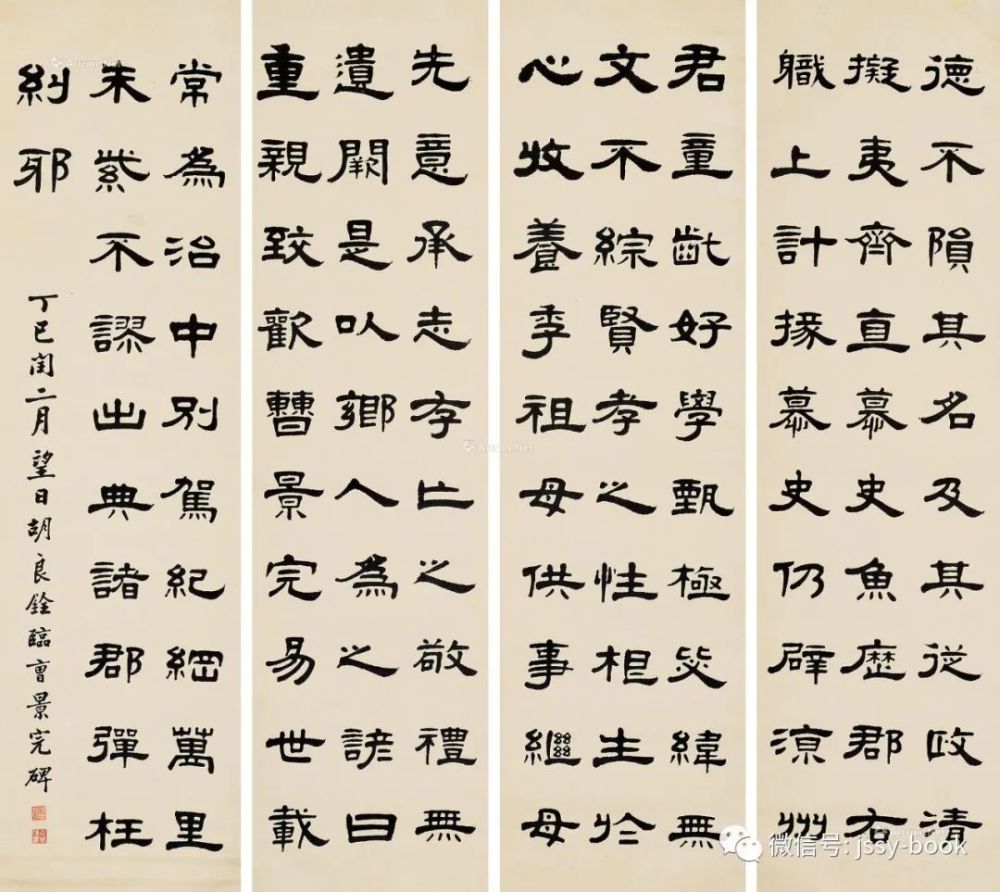 德不隕其名及其從政清
擬夷齊直慕史魚歷郡右
職上計掾慕史仍辟涼州
君童齔好學甄極毖緯無
文不綜賢孝之性根生於
心收養季祖母供事繼母
先意承志存亡之敬禮無
遺闕是以鄉人為之諺曰
重親致歡曹景完易世載
常為治中別駕紀綱萬里
朱紫不謬出典諸郡彈枉
糾邪
丁巳閏二月望日胡良銓臨曹景完碑
Artron.Net
微信号: jssy-book